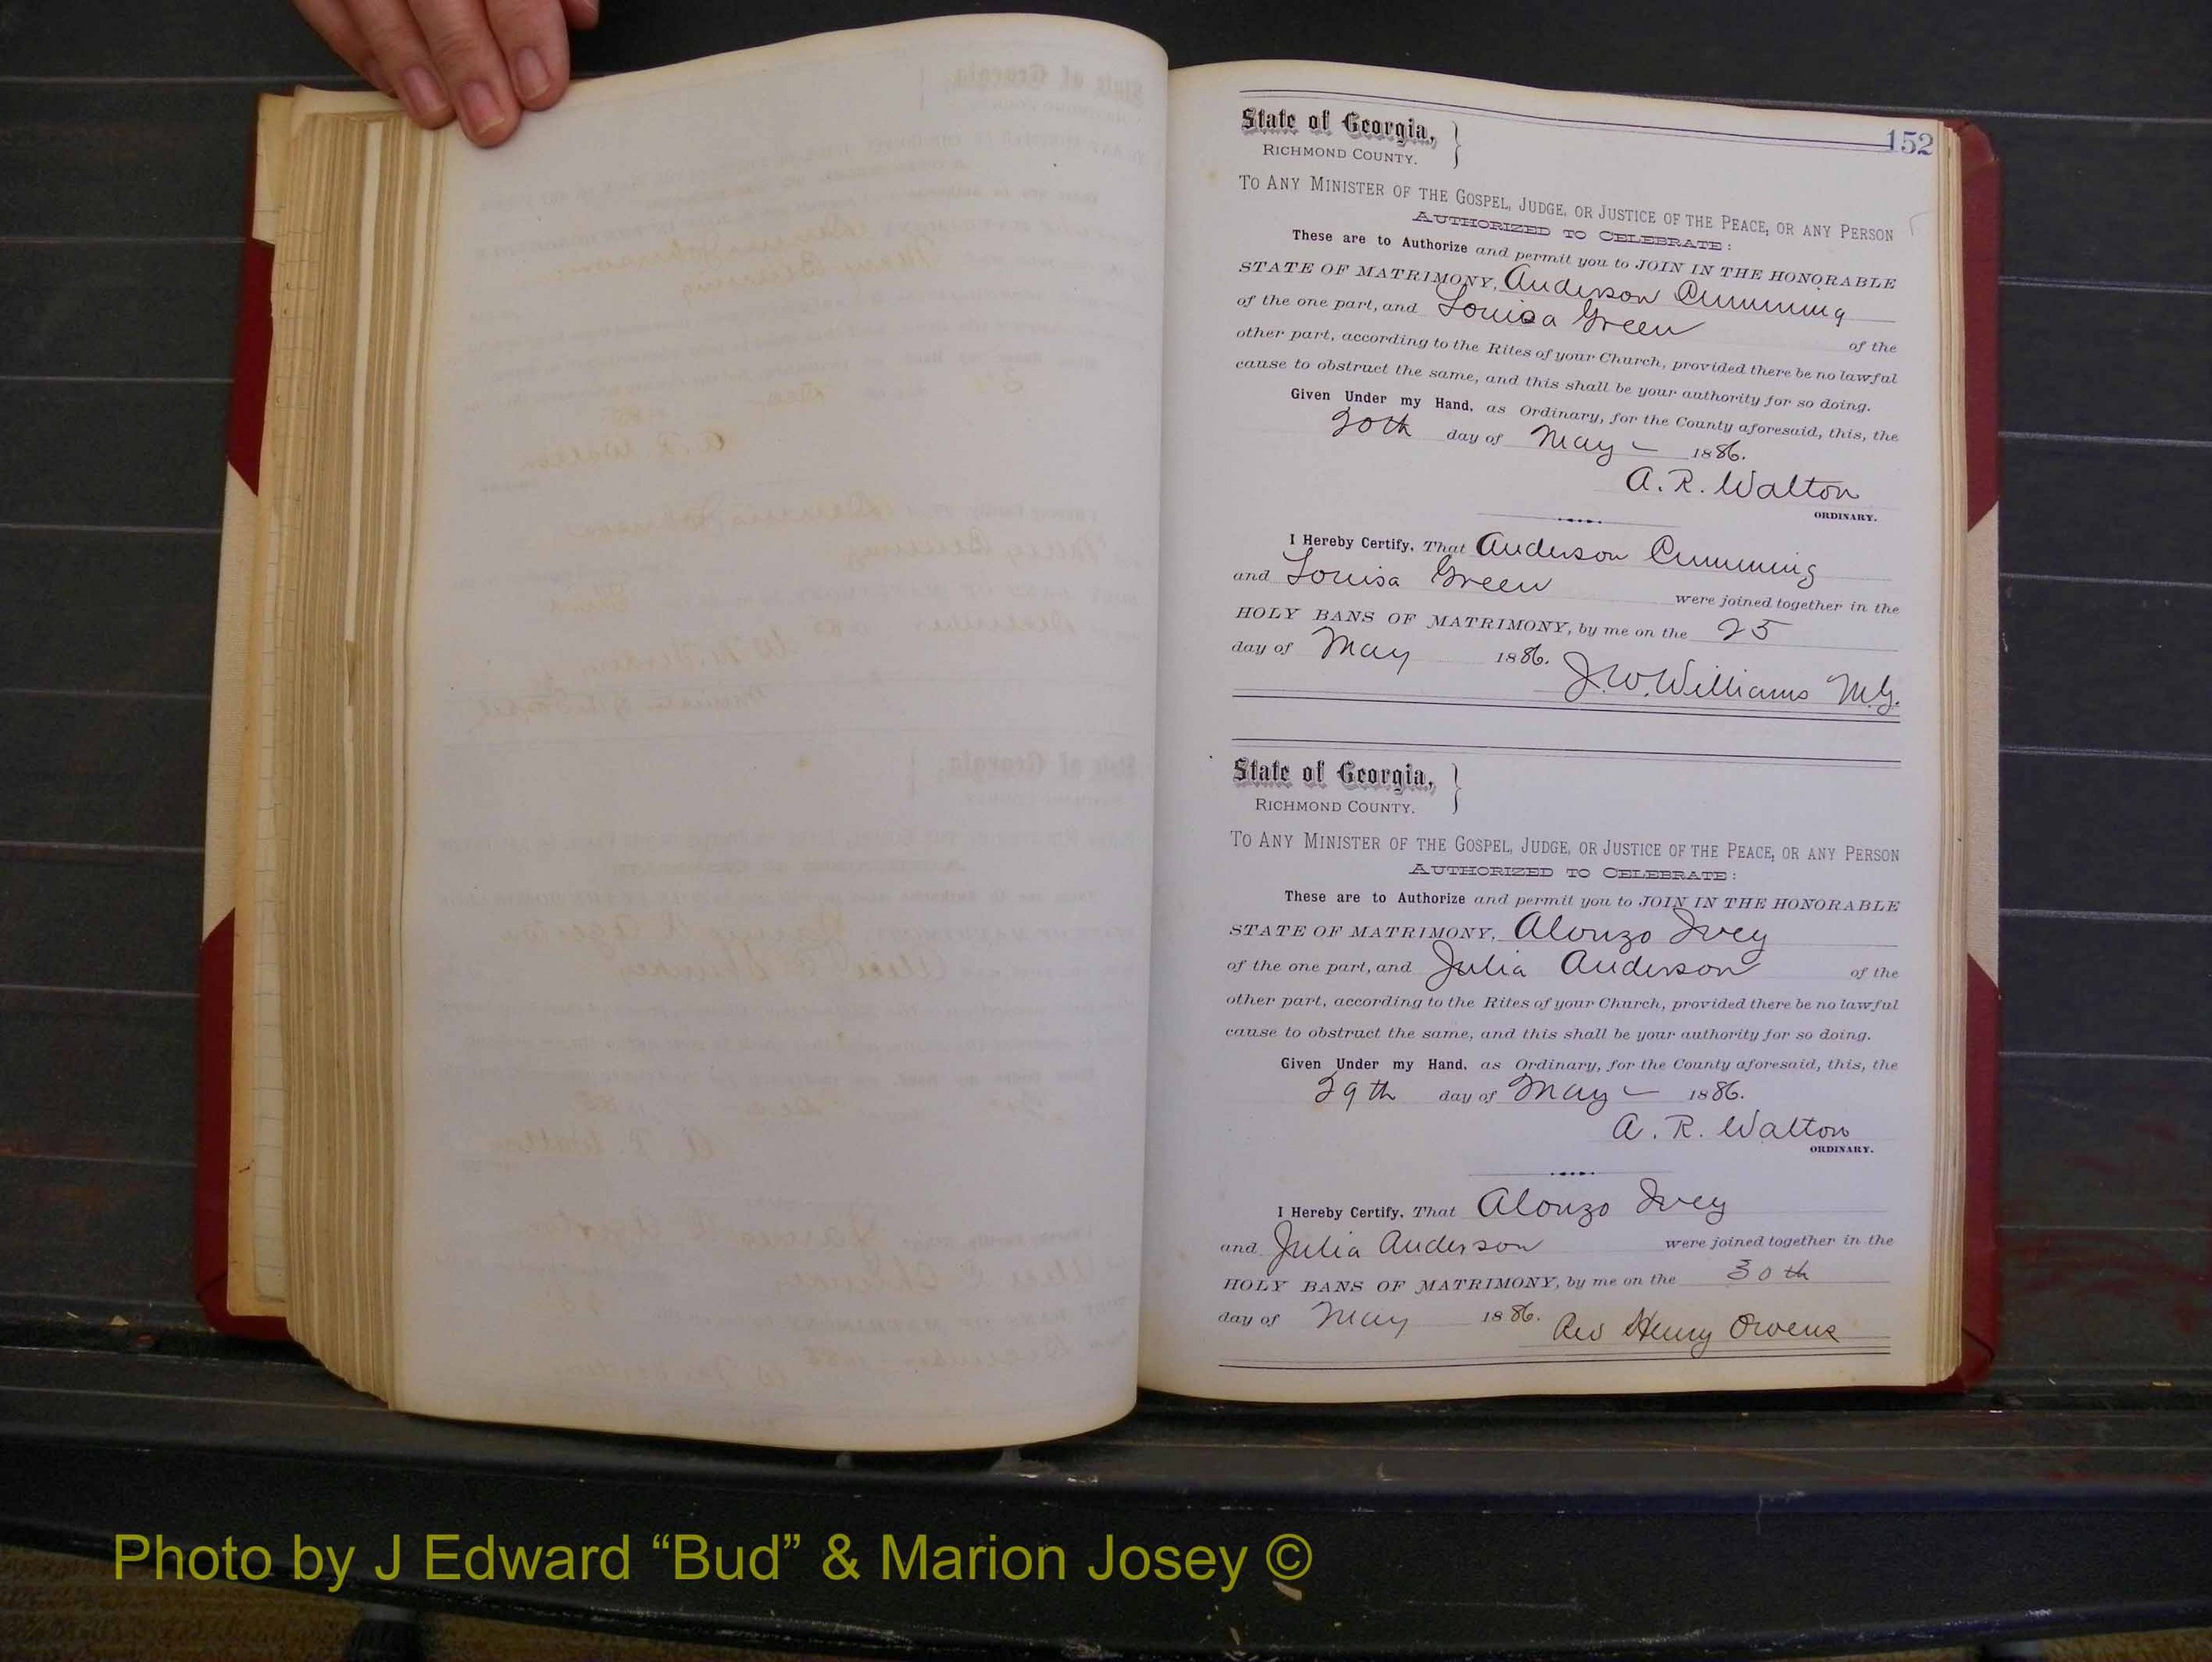 152
State of Georgia,
RICHMOND COUNTY.
TO ANY MINISTER OF THE GOSPEL, JUDGE, OR JUSTICE OF THE PEACE, OR ANY PERSON
AUTHORIZED TO CELEBRATE:
These are to Authorize and permit you to JOIN IN THE HONORABLE
STATE OF MATRIMONY, Anderson Cumming
of the one part, and Louisa Green of the
other part, according to the Rites of your Church, provided there be no lawful
cause to obstruct the same, and this shall be your authority for so doing.
Given Under my Hand, as Ordinary, for the County aforesaid, this, the
20th day of May 1886.
A. R. Walton
ORDINARY.
I Hereby Certify, That Anderson Cumming
and Louisa Green were joined together in the
HOLY BANS OF MATRIMONY, by me on the 25
day of May 1886.
J. W. Williams M.G.
State of Georgia,
RICHMOND COUNTY.
TO ANY MINISTER OF THE GOSPEL, JUDGE, OR JUSTICE OF THE PEACE, OR ANY PERSON
AUTHORIZED TO CELEBRATE:
These are to Authorize and permit you to JOIN IN THE HONORABLE
STATE OF MATRIMONY, Alonzo Ivey
of the one part, and Julia Anderson of the
other part, according to the Rites of your Church, provided there be no lawful
cause to obstruct the same, and this shall be your authority for so doing.
Given Under my Hand, as Ordinary, for the County aforesaid, this, the
29th day of May 1886.
A. R. Walton
ORDINARY.
I Hereby Certify, That Alonzo Ivey
and Julia Anderson were joined together in the
HOLY BANS OF MATRIMONY, by me on the 30th
day of May 1886.
Rev Henry Owens
Photo by J Edward “Bud” & Marion Josey ©